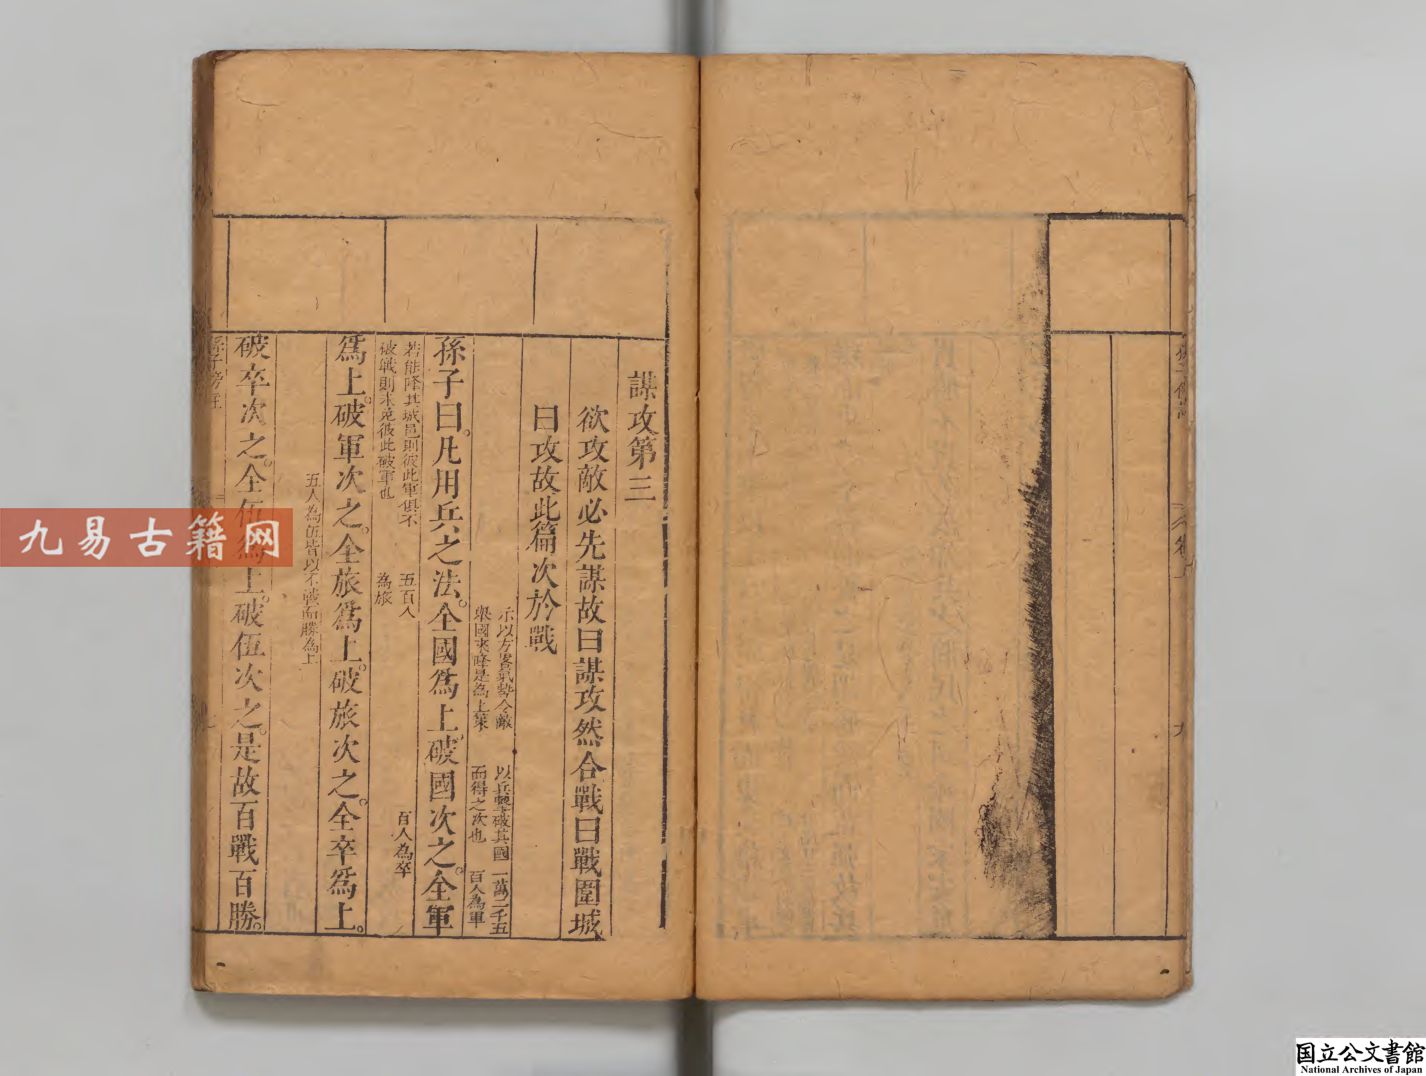 謀攻第三
欲攻敵必先謀故曰謀攻然合戰曰戰圍城
曰攻故此篇次於戰
示以方畧氣勢令敵
舉國來降是為上策
以兵擊破其國
而得之次也
一萬二千五
百人為軍
孫子曰。凡用兵之法。全國爲上。破國次之。全軍
若能降其城邑則彼此軍俱不
破戰則未免彼此破軍也
五百人
為旅
百人為卒
爲上。破軍次之。全旅爲上。破旅次之。全卒爲上。
五人為伍皆以不戰而勝為上
破卒次之。全伍爲上。破伍次之。是故百戰百勝。
孫子
九易古籍网
国立公文書館
National Archives of Japan